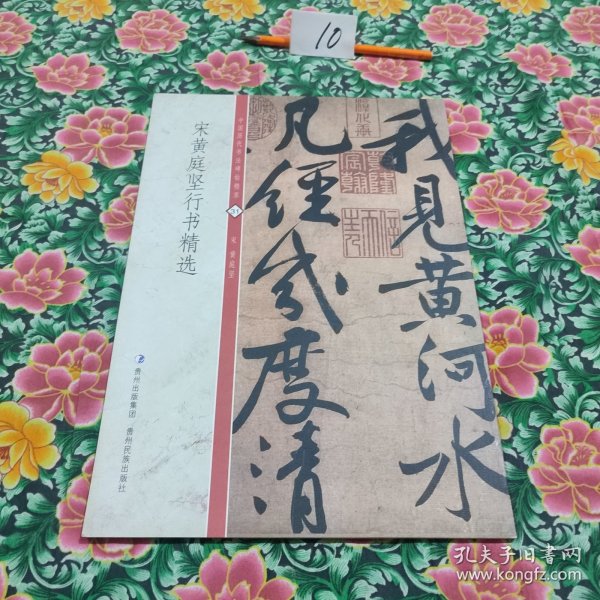 10
宋黄庭坚行书精选
中国历代书法碑帖精品
31
宋 黄庭坚
贵州出版集团 贵州民族出版社
我见黄河水
凡经几度清
孔夫子旧书网
www.kongfz.com